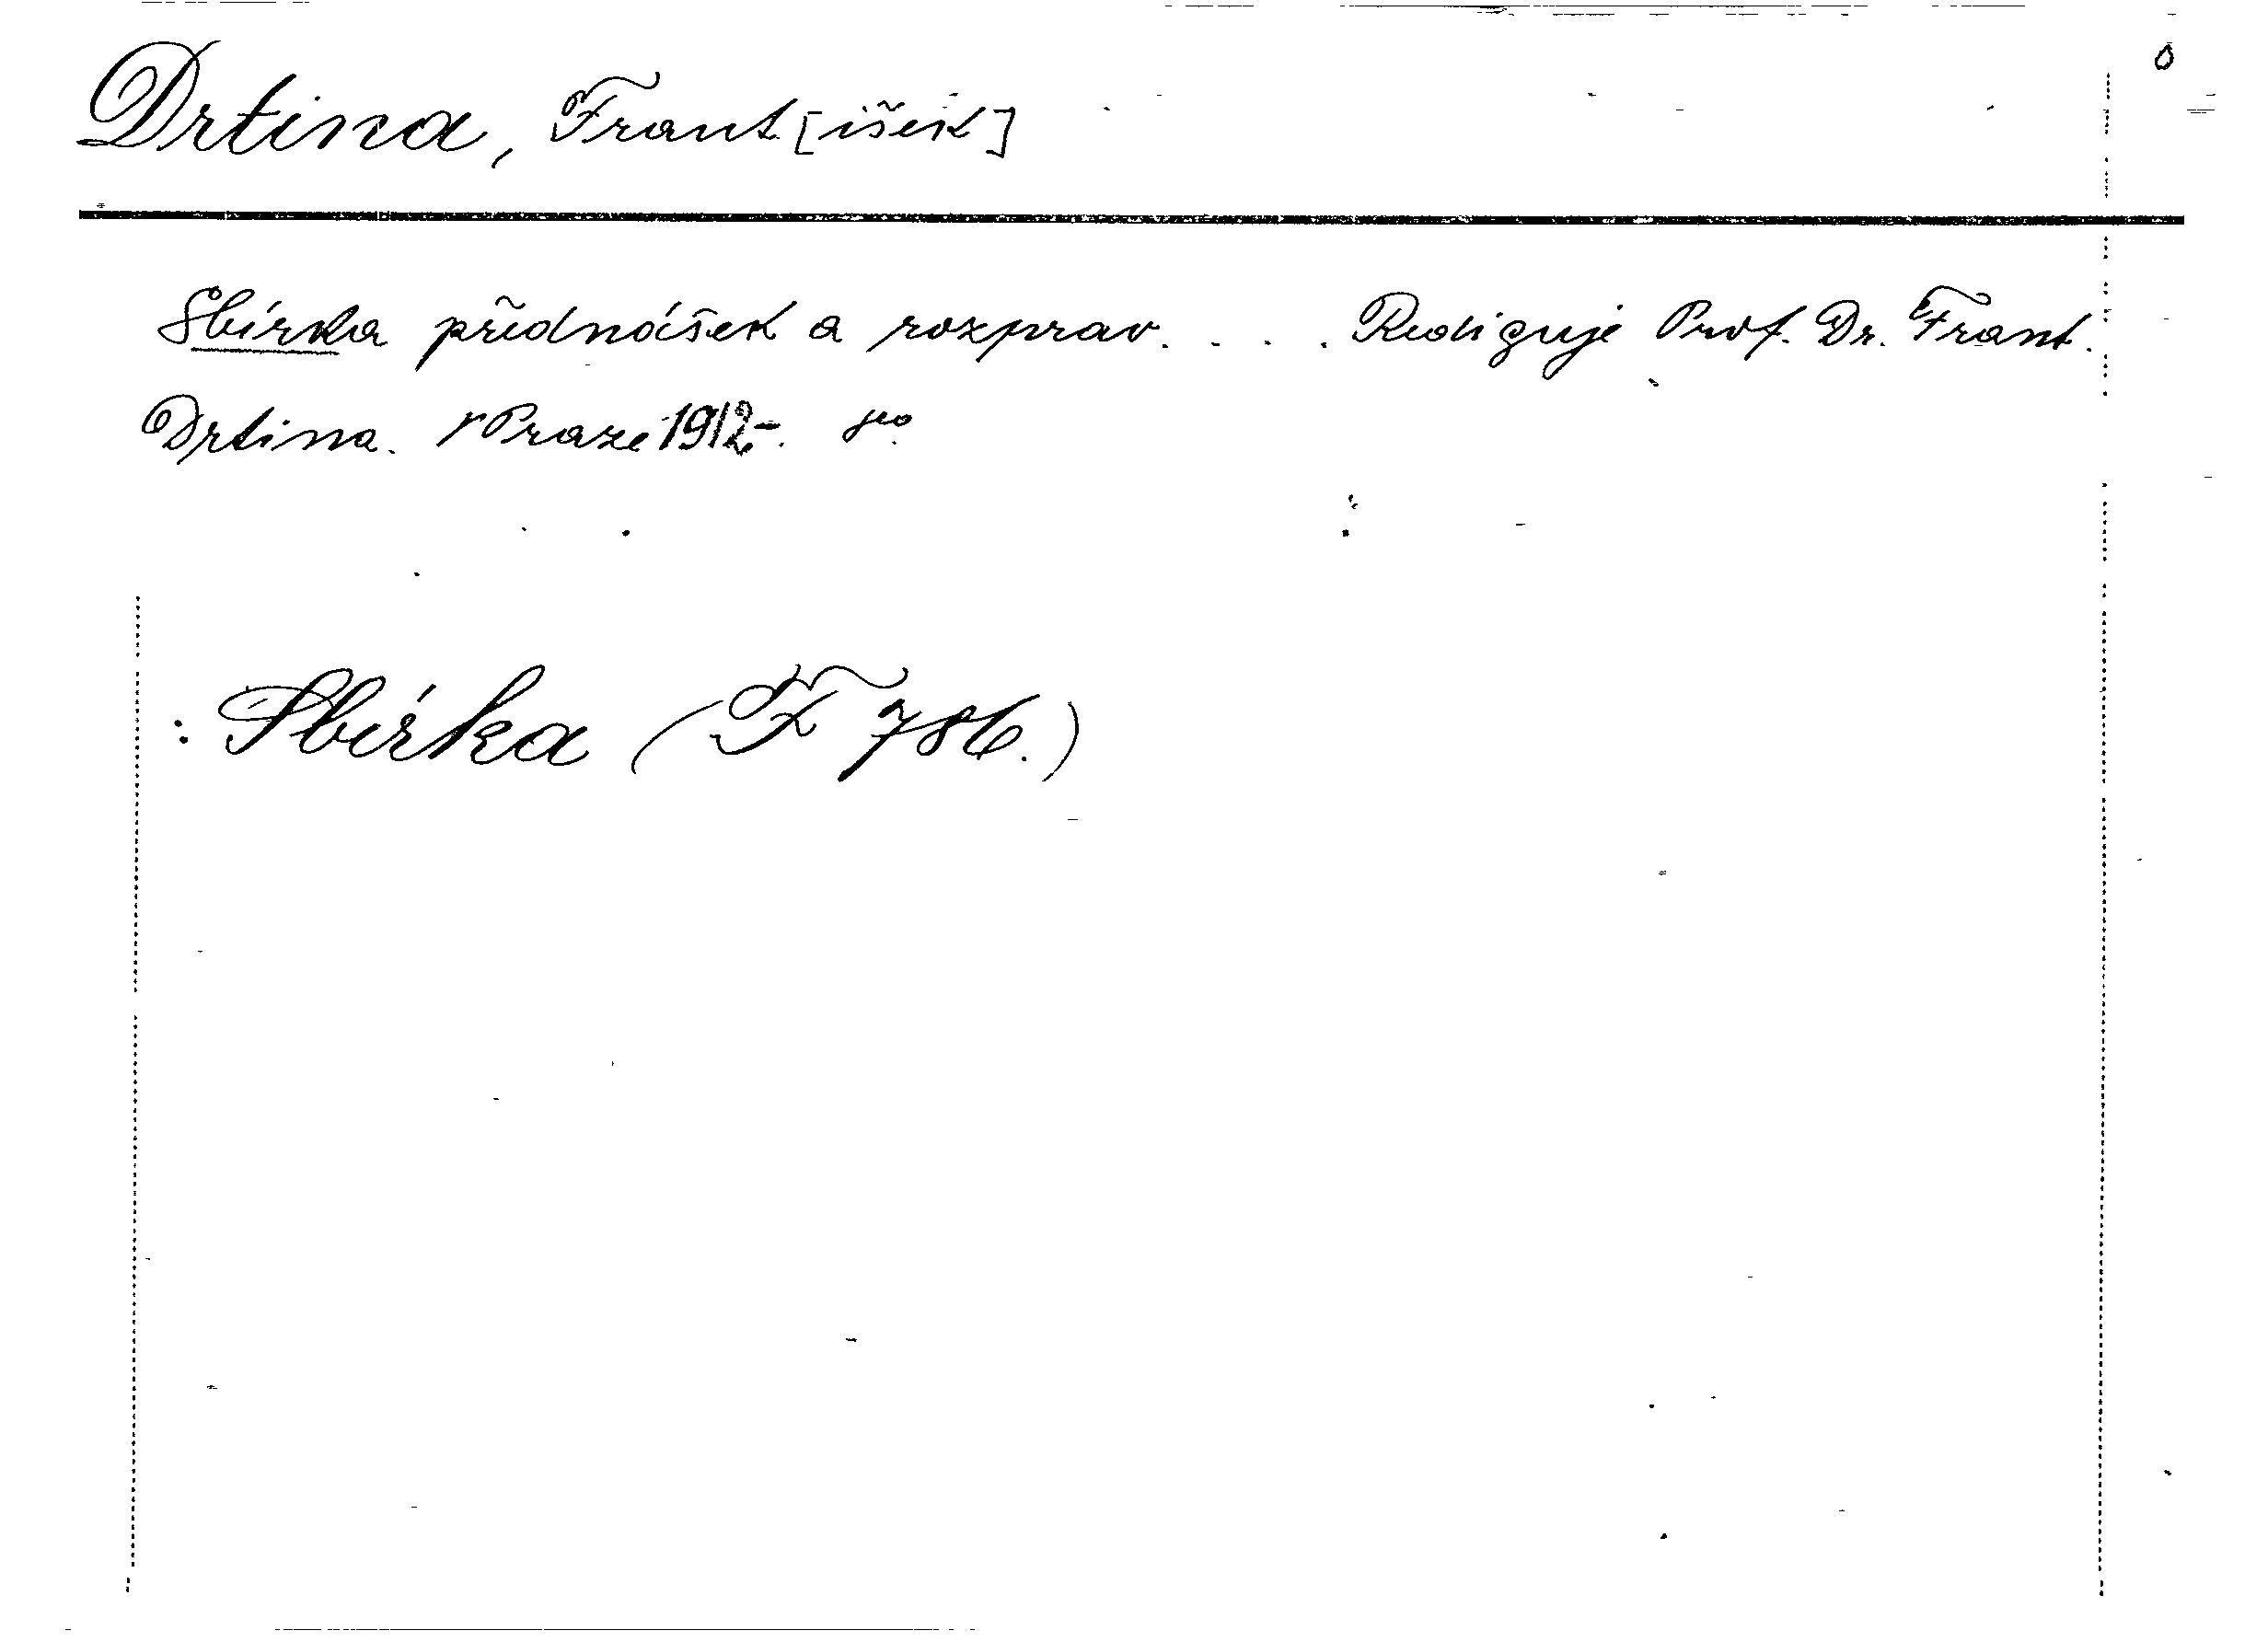 Drtina, Frant[išek]
Sbírka přednášek a rozprav. . . . Rediguje Prof. Dr. Frant.
Drtina. V Praze 1912-. 8°
: Sbírka (F 786.)